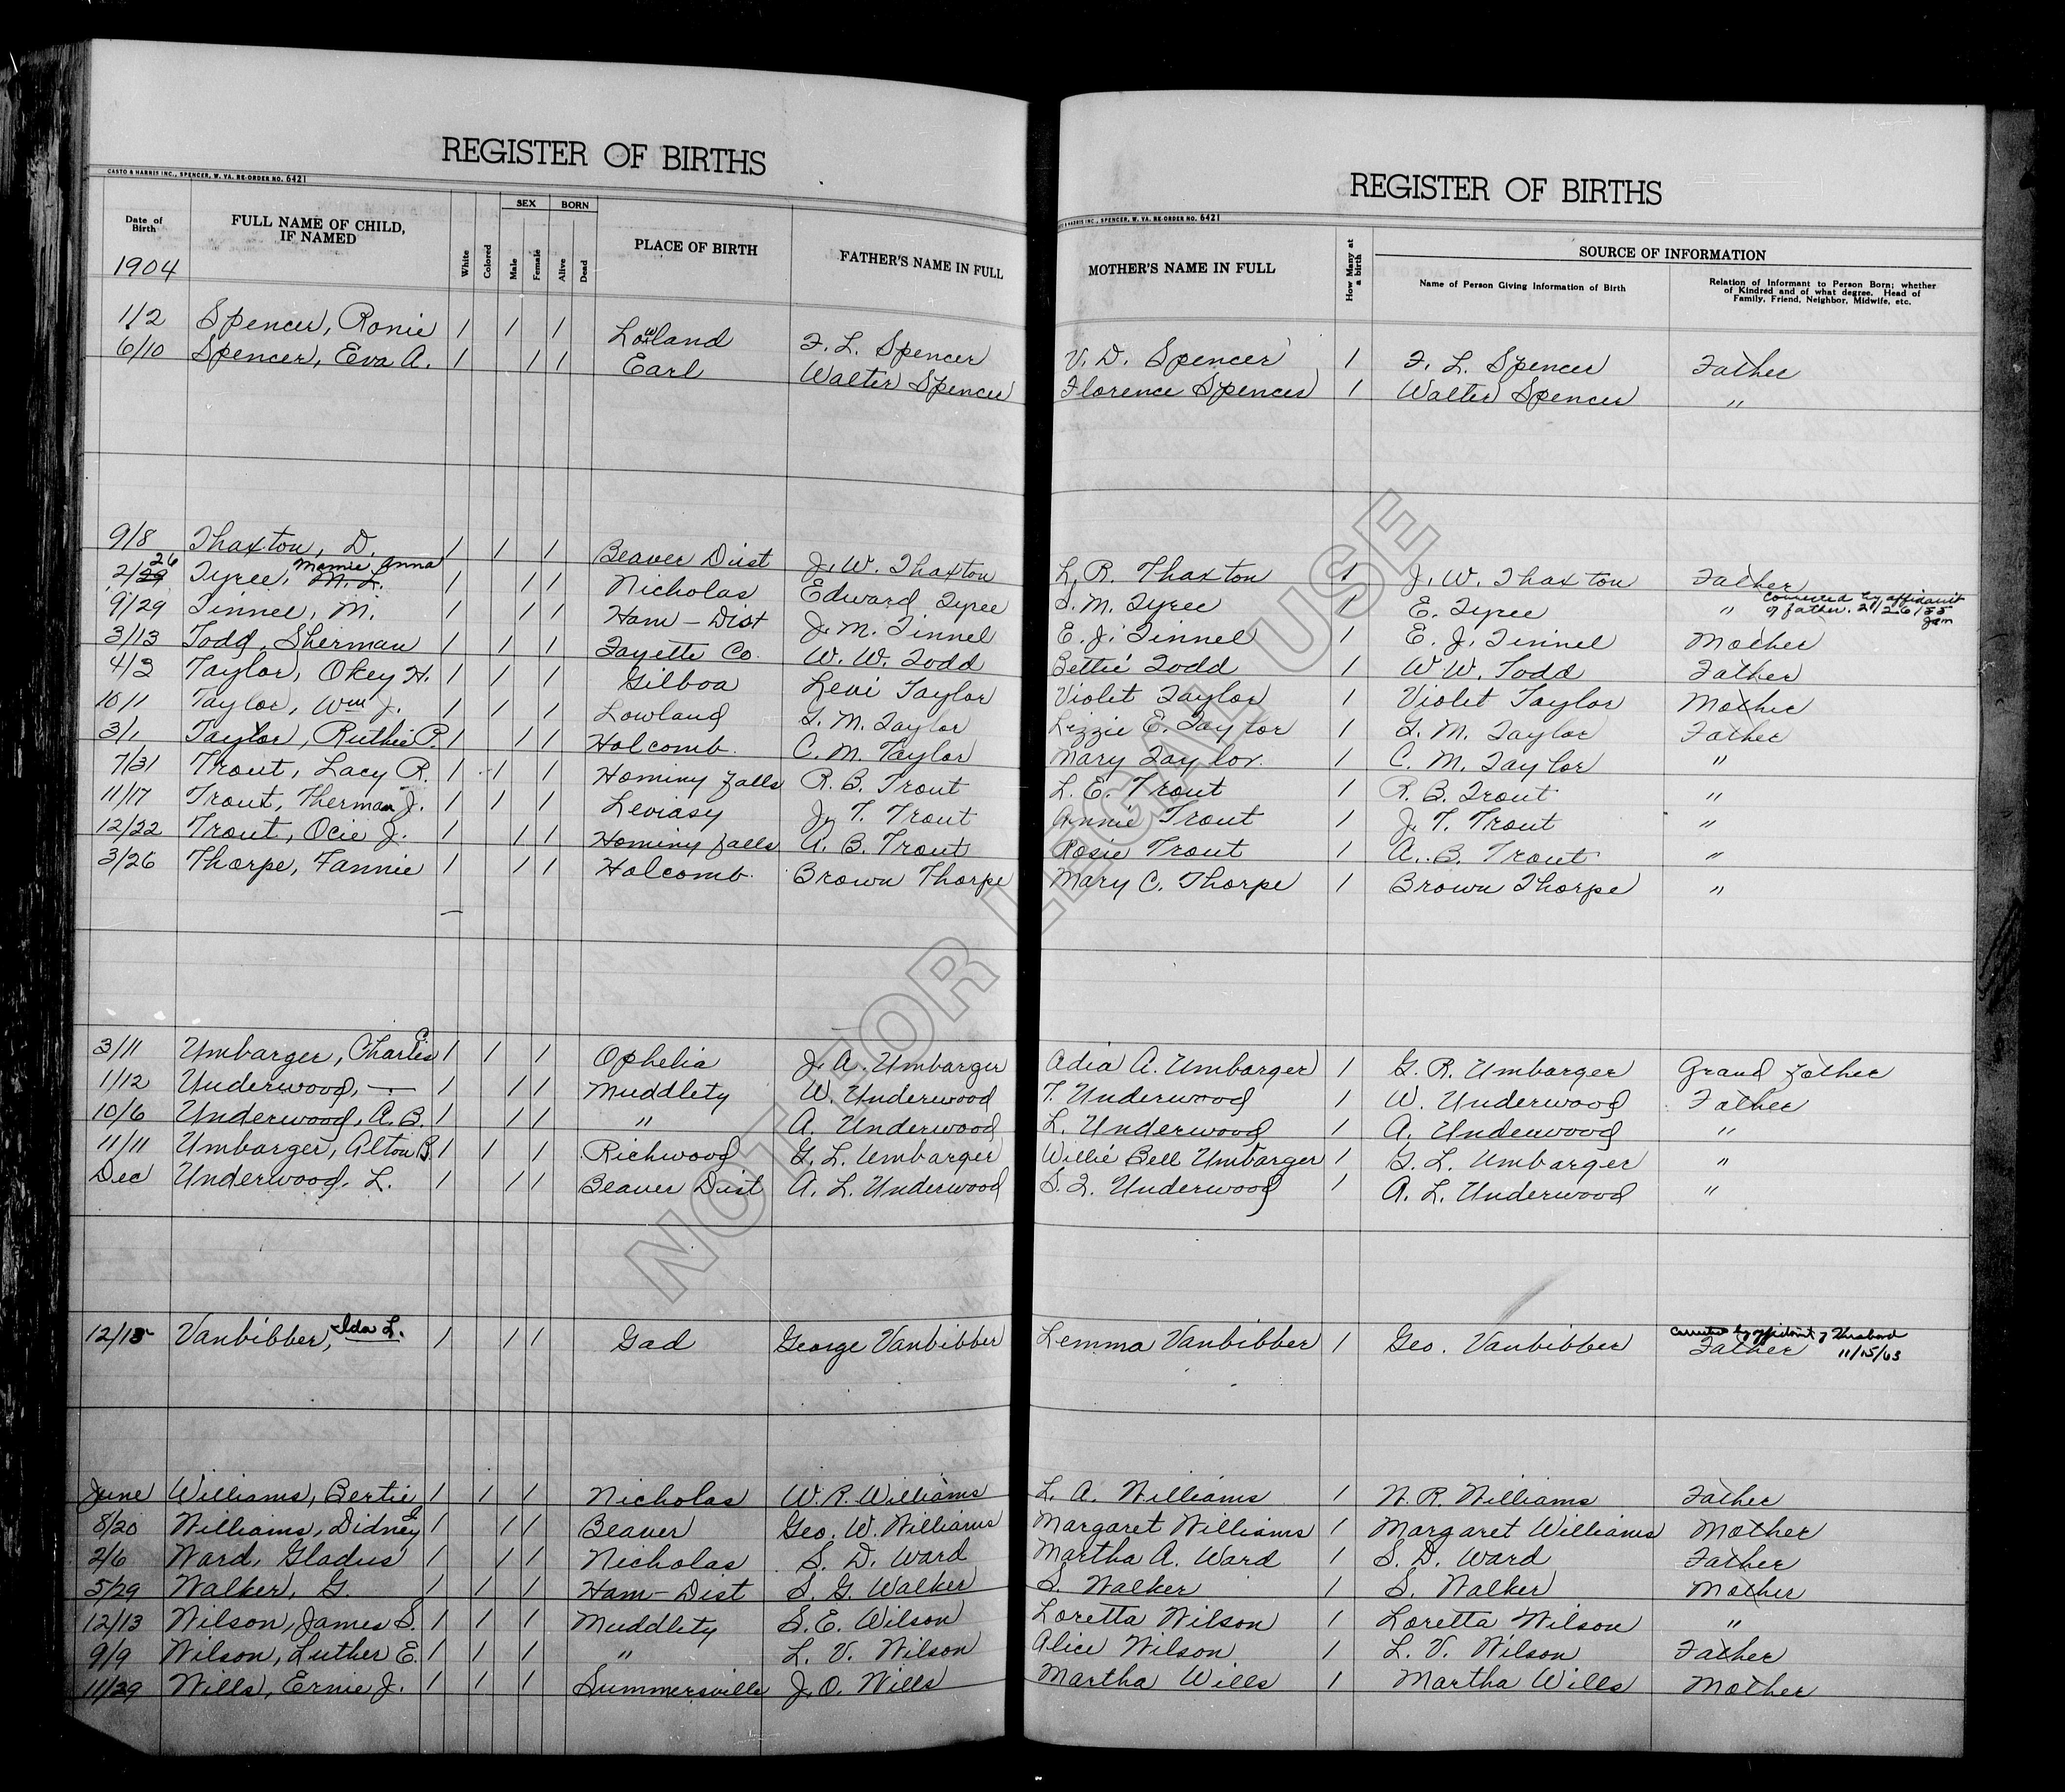 REGISTER OF BIRTHS
CASTO & HARRIS INC., SPENCER, W. VA. RE-ORDER NO. 6421
Date of Birth FULL NAME OF CHILD, IF NAMED White Colored SEX Male Female BORN Alive Dead PLACE OF BIRTH FATHER'S NAME IN FULL
1904
1/2 Spencer, Ronie 1 1 1 Lowland F. L. Spencer
6/10 Spencer, Eva A. 1 1 1 Earl Walter Spencer
9/8 Thaxton, D. 1 1 1 Beaver Dist J. W. Thaxton
26 Mamie Anna
2/29 Tyree, M. L. 1 1 1 Nicholas Edward Tyree
9/29 Tinnel, M. 1 1 1 Ham - Dist J. M. Tinnel
3/13 Todd, Sherman 1 1 1 Fayette Co. W. W. Todd
4/3 Taylor, Okey H. 1 1 1 Gilboa Levi Taylor
10/1 Taylor, Wm J. 1 1 1 Lowland G. M. Taylor
3/1 Taylor, Ruthie P. 1 1 1 Holcomb. C. M. Taylor
7/31 Trout, Lacy R. 1 1 1 Hominy Falls R. B. Trout
11/17 Trout, Therman J. 1 1 1 Leviasy J. T. Trout
12/22 Trout, Ocie J. 1 1 1 Hominy Falls A. B. Trout
3/26 Thorpe, Fannie 1 1 1 Holcomb. Brown Thorpe
3/11 Umbarger, Charles C. 1 1 1 Ophelia J. A. Umbarger
1/12 Underwood, — 1 1 1 Muddlety W. Underwood
10/6 Underwood, A. B. 1 1 1 " A. Underwood
11/11 Umbarger, Alton B. 1 1 1 Richwood G. L. Umbarger
Dec Underwood, L. 1 1 1 Beaver Dist A. L. Underwood
12/15 Vanbibber, Ida L. 1 1 1 Gad George Vanbibber
June Williams, Bertie 1 1 1 Nicholas W. R. Williams
8/20 Williams, Didney 1 1 1 Beaver Geo. W. Williams
2/6 Ward, Gladus 1 1 1 Nicholas S. D. Ward
5/29 Walker, G. 1 1 1 Ham - Dist S. G. Walker
12/13 Wilson, James S. 1 1 1 Muddlety S. E. Wilson
9/9 Wilson, Luther E. 1 1 1 " L. V. Wilson
11/29 Wills, Ernie J. 1 1 1 Summersville J. O. Wills
REGISTER OF BIRTHS
HARRIS INC., SPENCER, W. VA. RE-ORDER NO. 6421
MOTHER'S NAME IN FULL How Many at a birth SOURCE OF INFORMATION
Name of Person Giving Information of Birth Relation of Informant to Person Born; whether of Kindred and of what degree. Head of Family, Friend, Neighbor, Midwife, etc.
V. D. Spencer 1 F. L. Spencer Father
Florence Spencer 1 Walter Spencer "
L. R. Thaxton 1 J. W. Thaxton Father
S. M. Tyree 1 E. Tyree " Corrected by affidavit of father. 2/26/55
E. J. Tinnel 1 E. J. Tinnel Mother
Bettie Todd 1 W. W. Todd Father
Violet Taylor 1 Violet Taylor Mother
Lizzie E. Taylor 1 G. M. Taylor Father
Mary Taylor 1 C. M. Taylor "
L. E. Trout 1 R. B. Trout "
Annie Trout 1 J. T. Trout "
Rosie Trout 1 A. B. Trout "
Mary C. Thorpe 1 Brown Thorpe "
Adia A. Umbarger 1 G. R. Umbarger Grand Father
T. Underwood 1 W. Underwood Father
L. Underwood 1 A. Underwood "
Willie Bell Umbarger 1 G. L. Umbarger "
S. L. Underwood 1 A. L. Underwood "
Lemma Vanbibber 1 Geo. Vanbibber Father 11/15/63
L. A. Williams 1 W. R. Williams Father
Margaret Williams 1 Margaret Williams Mother
Martha A. Ward 1 S. D. Ward Father
S. Walker 1 S. Walker Mother
Loretta Wilson 1 Loretta Wilson "
Alice Wilson 1 L. V. Wilson Father
Martha Wills 1 Martha Wills Mother
NOT FOR LEGAL USE